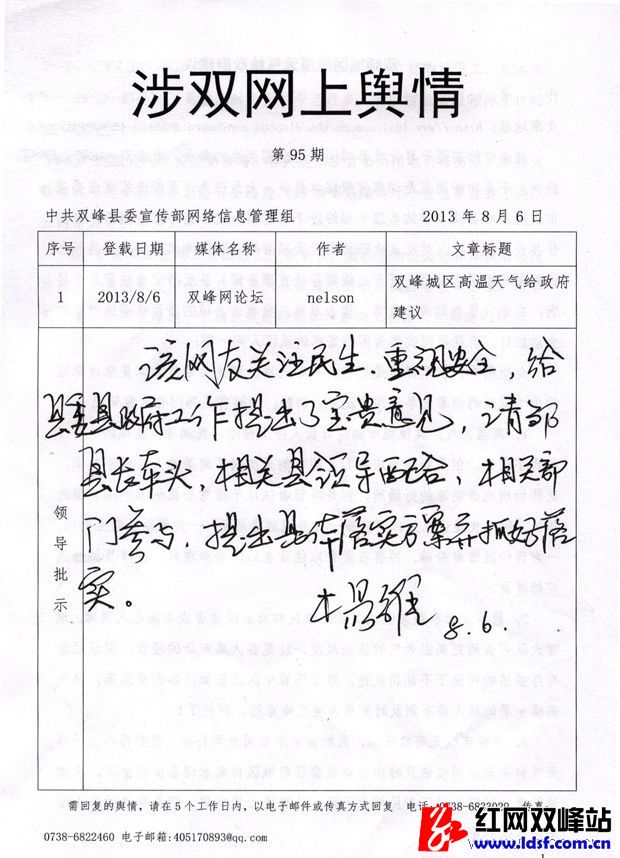 涉双网上舆情
第95期
中共双峰县委宣传部网络信息管理组 2013年8月6日
序号 登载日期 媒体名称 作者 文章标题
1 2013/8/6 双峰网论坛 nelson 双峰城区高温天气给政府
建议
领导批示
该网友关注民生、重视安全，给
县委县政府工作提出了宝贵意见，请部
县长牵头，相关县领导配合，相关部
门参与，提出具体落实方案并抓好落
实。
8.6.
需回复的舆情，请在5个工作日内，以电子邮件或传真方式回复 电话：0738-6823020 传真：
0738-6822460 电子邮箱：405170893@qq.com
红网双峰站
www.ldsf.com